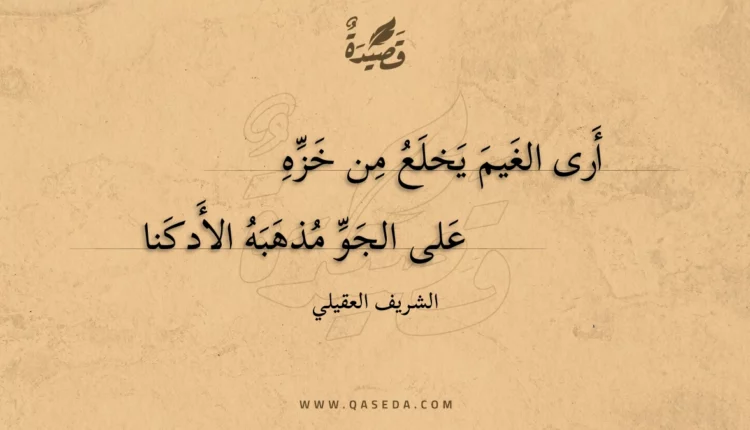 قَصِيدَةٌ
أَرى الغَيمَ يَخلَعُ مِن خَزِّهِ
عَلى الجَوِّ مُذهَبَهُ الأَدكَنا
الشريف العقيلي
WWW.QASEDA.COM